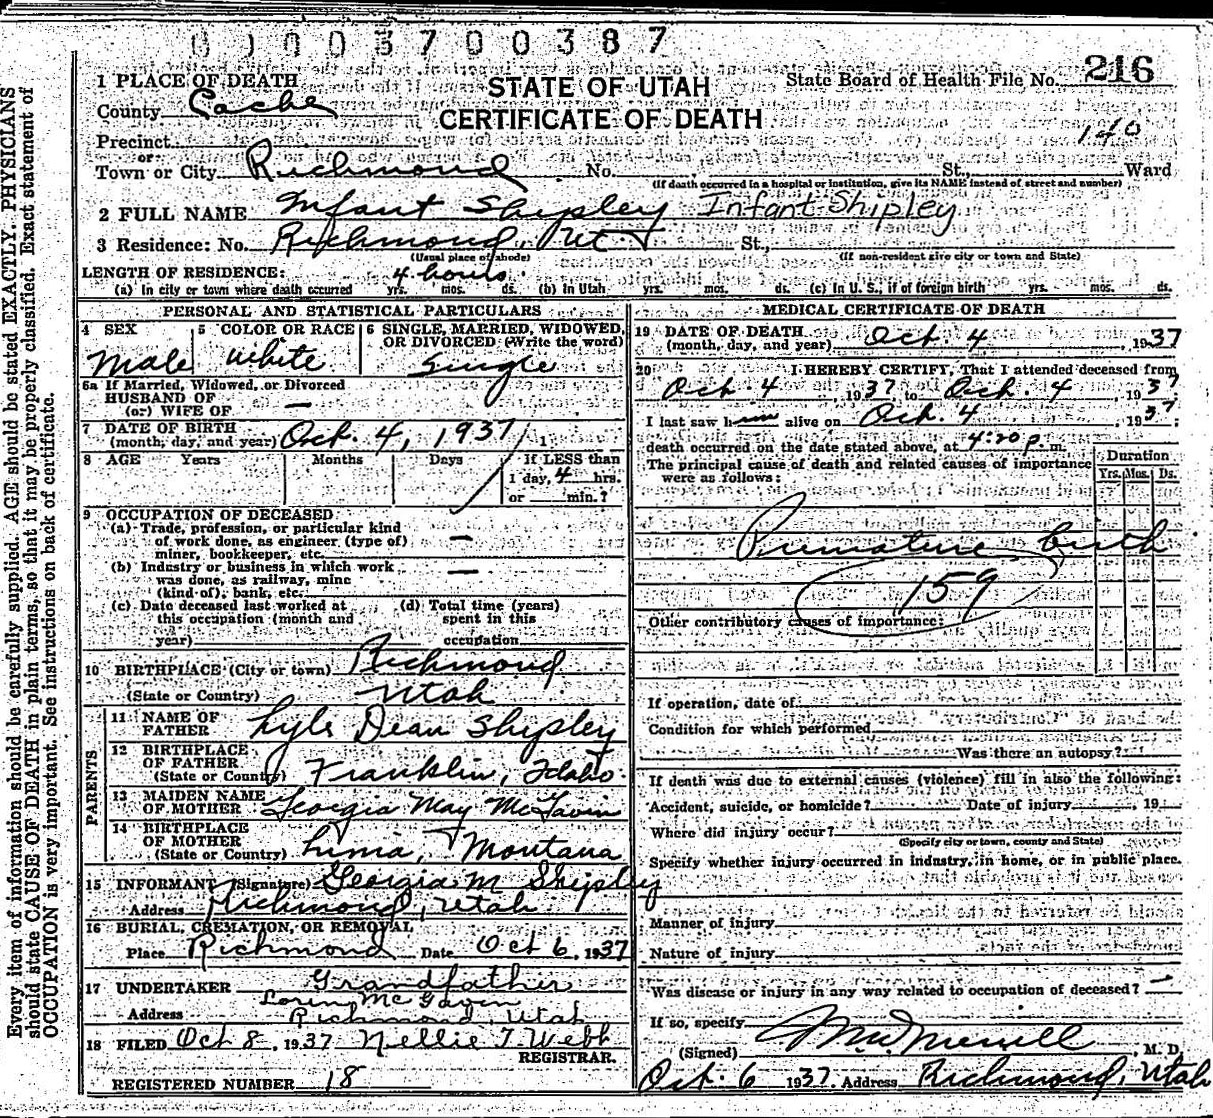 0100370038 7
1 PLACE OF DEATH
STATE OF UTAH
State Board of Health File No. 216
County Cache
CERTIFICATE OF DEATH
Precinct
140
or
Town or City Richmond No. St., Ward
(If death occurred in a hospital or institution, give its NAME instead of street and number)
2 FULL NAME Infant Shipley Infant Shipley
3 Residence: No. Richmond, Ut. St.,
(Usual place of abode) (If non-resident give city or town and State)
LENGTH OF RESIDENCE: 4 hours.
(a) In city or town where death occurred yrs. mos. ds. (b) In Utah yrs. mos. ds. (c) In U. S., if of foreign birth yrs. mos. ds.
PERSONAL AND STATISTICAL PARTICULARS
4 SEX 5 COLOR OR RACE 6 SINGLE, MARRIED, WIDOWED, OR DIVORCED (Write the word)
Male White Single
6a If Married, Widowed, or Divorced
HUSBAND OF
(or) WIFE OF —
7 DATE OF BIRTH
(month, day, and year) Oct. 4, 1937
8 AGE Years Months Days If LESS than
1 day, 4 hrs.
or min.?
9 OCCUPATION OF DECEASED
(a) Trade, profession, or particular kind
of work done, as engineer (type of) —
miner, bookkeeper, etc.
(b) Industry or business in which work
was done, as railway, mine —
(kind of), bank, etc.
(c) Date deceased last worked at (d) Total time (years)
this occupation (month and spent in this
year) occupation
10 BIRTHPLACE (City or town) Richmond
(State or Country) Utah
PARENTS
11 NAME OF
FATHER Lyle Dean Shipley
12 BIRTHPLACE
OF FATHER
(State or Country) Franklin, Idaho.
13 MAIDEN NAME
OF MOTHER Georgia May McGavin
14 BIRTHPLACE
OF MOTHER
(State or Country) Lima, Montana
15 INFORMANT (Signature) Georgia M Shipley
Address Richmond, Utah
16 BURIAL, CREMATION, OR REMOVAL
Place Richmond Date Oct 6, 1937
17 UNDERTAKER Grandfather
Loren McGavin
Address Richmond, Utah
18 FILED Oct 8, 1937 Nellie T Webb
REGISTRAR.
REGISTERED NUMBER 18
MEDICAL CERTIFICATE OF DEATH
19 DATE OF DEATH
(month, day, and year) Oct. 4, 1937
20 I HEREBY CERTIFY, That I attended deceased from
Oct. 4, 1937 to Oct. 4, 1937
I last saw him alive on Oct. 4, 1937;
death occurred on the date stated above, at 4:20 p. m.
The principal cause of death and related causes of importance
were as follows:
Duration
Yrs. Mos. Ds.
Premature birth
159
Other contributory causes of importance:
If operation, date of
Condition for which performed
Was there an autopsy?
If death was due to external causes (violence) fill in also the following:
Accident, suicide, or homicide? Date of injury , 19
Where did injury occur?
(Specify city or town, county and State)
Specify whether injury occurred in industry, in home, or in public place.
Manner of injury
Nature of injury
Was disease or injury in any way related to occupation of deceased? —
If so, specify
(Signed) Merrill, M. D.
Oct. 6 1937. Address Richmond, Utah
Every item of information should be carefully supplied. AGE should be stated EXACTLY. PHYSICIANS
should state CAUSE OF DEATH in plain terms, so that it may be properly classified. Exact statement of
OCCUPATION is very important. See instructions on back of certificate.